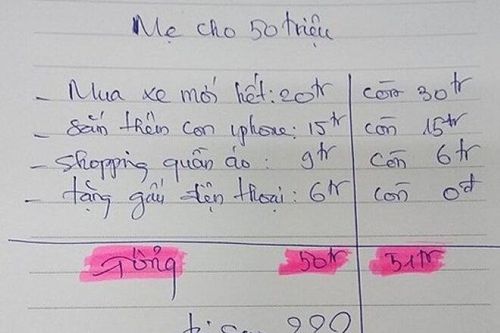 Mẹ cho 50 triệu
- Mua xe mới hết: 20tr còn 30tr
- sắn thêm con iphone: 15tr còn 15tr
- shopping quần áo: 9tr còn 6tr
- tặng gấu điện thoại: 6tr còn 0đ
Tổng 50tr 51tr